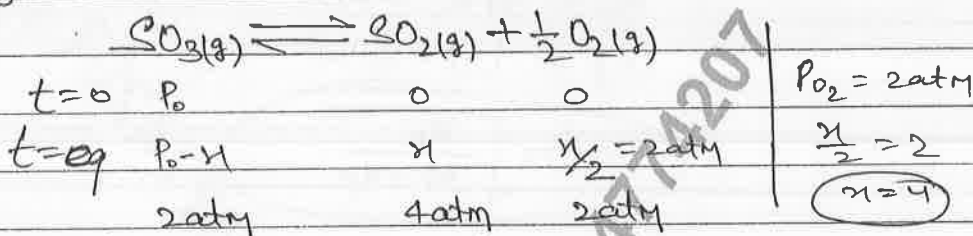 SO3(g) ⇌ SO2(g) + 1/2 O2(g)
t=0 P0 0 0
t=eq P0-x x x/2 = 2atm
2atm 4atm 2atm
PO2 = 2atm
x/2 = 2
x=4
74207